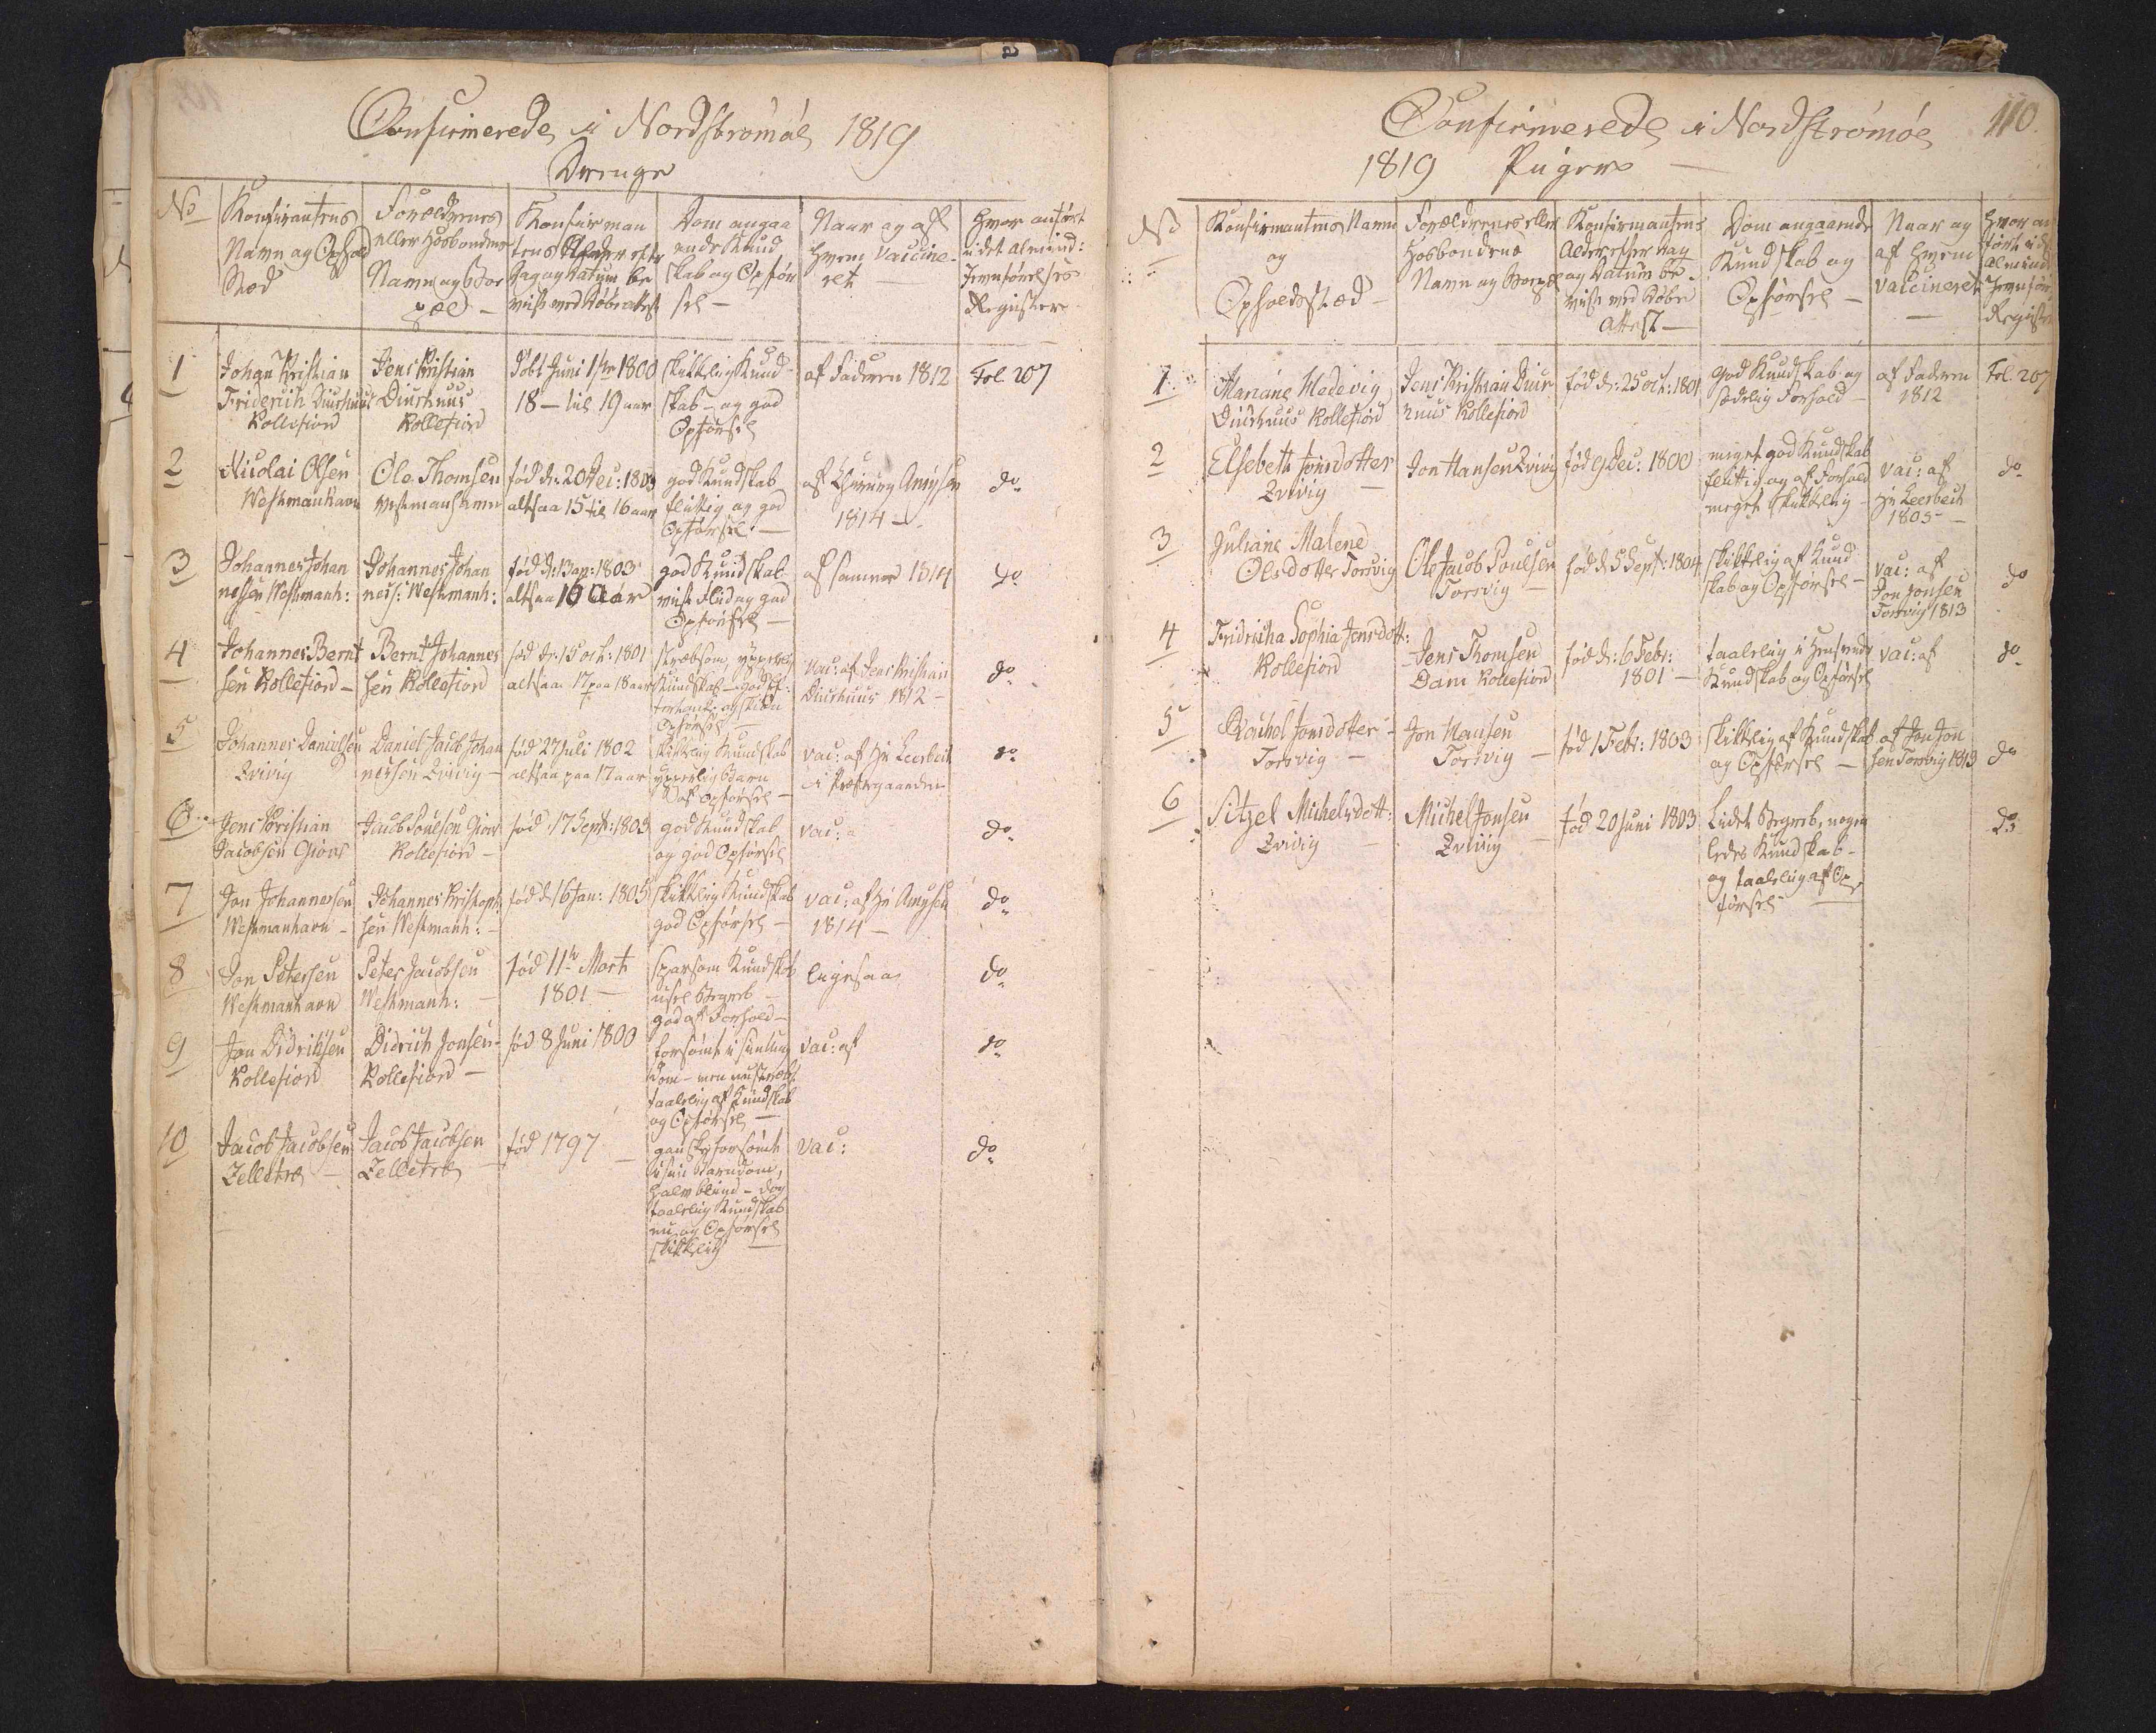 Confirmerede i Nordstrømøe 1819
Drenge
No
Konfirmantens
Navn og Ophold
Sted
Forældrenes
eller Hosbondens
Navn og Bo-
pæl
Konfirman
tens Alder efter
Dag og Datum be
viist ved Døbeattest
Dom angaa
ende Kund
skab og Opfør
sel
Naar og af
hvem Vaccine-
ret
Hvor anført
i det almind:
Jevnførelses
Register
1
Johan Kristian
Friderich Diurhuus
Kollefiord
Jens Kristian
Diurhuus
Kollefiord
døbt Juni 1ste 1800
18 - til 19 aar
skikkelig Kund-
skab - og god
Opførsel
af Faderen 1812
Fol. 207
2
Nicolai Olsen
Westmanhavn
Ole Thomsen
Westmanhavn
fød d: 20 Dec: 1803
altsaa 15 til 16 aar
god Kundskab
flittig og god
Opførsel
af Chirurg
1814
do
3
Johannes Johan
nessen Westmanh:
Johannes Johan
ness: Westmanh:
fød d: 13 ap: 1803
altsaa 16 Aar
god Kundskab
viist Flid og god
Opførsel
af samme 1814
do
4
Johannes Bernt
sen Kollefiord
Bernt Johannes
sen Kollefiord
fød d: 15 oct: 1801
altsaa 17 paa 18 aar
stræbsom, ypperlig
Kundskab -
og skiøn
Opførsel
Vac: af Jens Kristian
Diurhuus 1812
do
5
Johannes Danielsen
Qvivig
Daniel Jacob Johan
nessen Qvivig
fød 27 Juli 1802
altsaa paa 17 aar
skikkelig Kundskab
ypperlig Barn
af Opførsel
vac: af Hr Leerbeck
i Præstegaarden
do
6
Jens Kristian
Jacobsen Giøns
Jacob Poulsen Giøns
Kollefiord
fød 17 Sept: 1803
god Kundskab
og god Opførsel
vac: a
do
7
Jon Johannessen
Westmanhavn
Johannes Kristoph:
sen Westmanh:
fød d 16 Jan: 1805
skikkelig Kundskab
god Opførsel
vac: af Hr
1814
do
8
Jon Petersen
Westmanhavn
Peter Jacobsen
Westmanh:
fød 11te Marti
1801
sparsom Kundskab
usel Begreb
god af Forhold
ligesaa
do
9
Jon Didrichsen
Kollefiord
Didrich Jonsen
Kollefiord
fød 8 Juni 1800
forsømt i sin Ung
dom - men
taalelig af Kundskab
og Opførsel
vac: af
do
10
Jacob Jacobsen
Zelletræ
Jacob Jacobsen
Zelletræ
fød 1797
ganske forsømt
i sin Barndom,
halv blind - dog
taalelig Kundskab
nu, og Opførsel
skikkelig
vac:
do
Confirmerede i Nordstrømøe
110.
1819 Piger
No
Konfirmantens Navn
og
Opholdssted
Forældrenes eller
Hosbondens
Navn og Bopæl
Konfirmantens
Alder efter Dag
og Datum be-
viist ved Døbe
attest
Dom angaaende
Kundskab og
Opførsel
Naar og
af hvem
vaccineret
Hvor an
ført i d
almind
Jevnfør
Regist
1
Mariane Hedevig
Diurhuus Kollefiord
Jens Kristian Diur
huus Kollefiord
fød d: 25 oct: 1801
god Kundskab og
sædelig Forhold
af Faderen
1812
Fol. 207
2
Elsebeth Jonsdotter
Qvivig
Jon Hansen Qvivig
fød 9 Dec: 1800
meget god Kundskab
flittig og af Forhold
meget skikkelig
vac: af
Hr Leerbeck
1805
do
3
Juliane Malene
Olsdotter Torsvig
Ole Jacob Poulsen
Torsvig
fød d 5 Sept: 1804
skikkelig af Kund
skab og Opførsel
vac: af
Jon Jonsen
Torsvig 1813
do
4
Fridricha Sophia Jensdott:
Kollefiord
Jens Thomsen
Dam Kollefiord
fød d: 6 Febr:
1801
taalelig i Henseende
Kundskab og Opførsel
vac: af
do
5
Rachel Jonsdotter
Torsvig
Jon Hansen
Torsvig
fød 1 Febr: 1803
skikkelig af Kundskab
og Opførsel
af Jon Jon
sen Torsvig 1813
do
6
Sitzel Michelsdott:
Qvivig
Michel Jonsen
Qvivig
fød 20 Juni 1803
Lidet Begreb, nogen
ledes Kundskab
og taalelig af Op
førsel
do